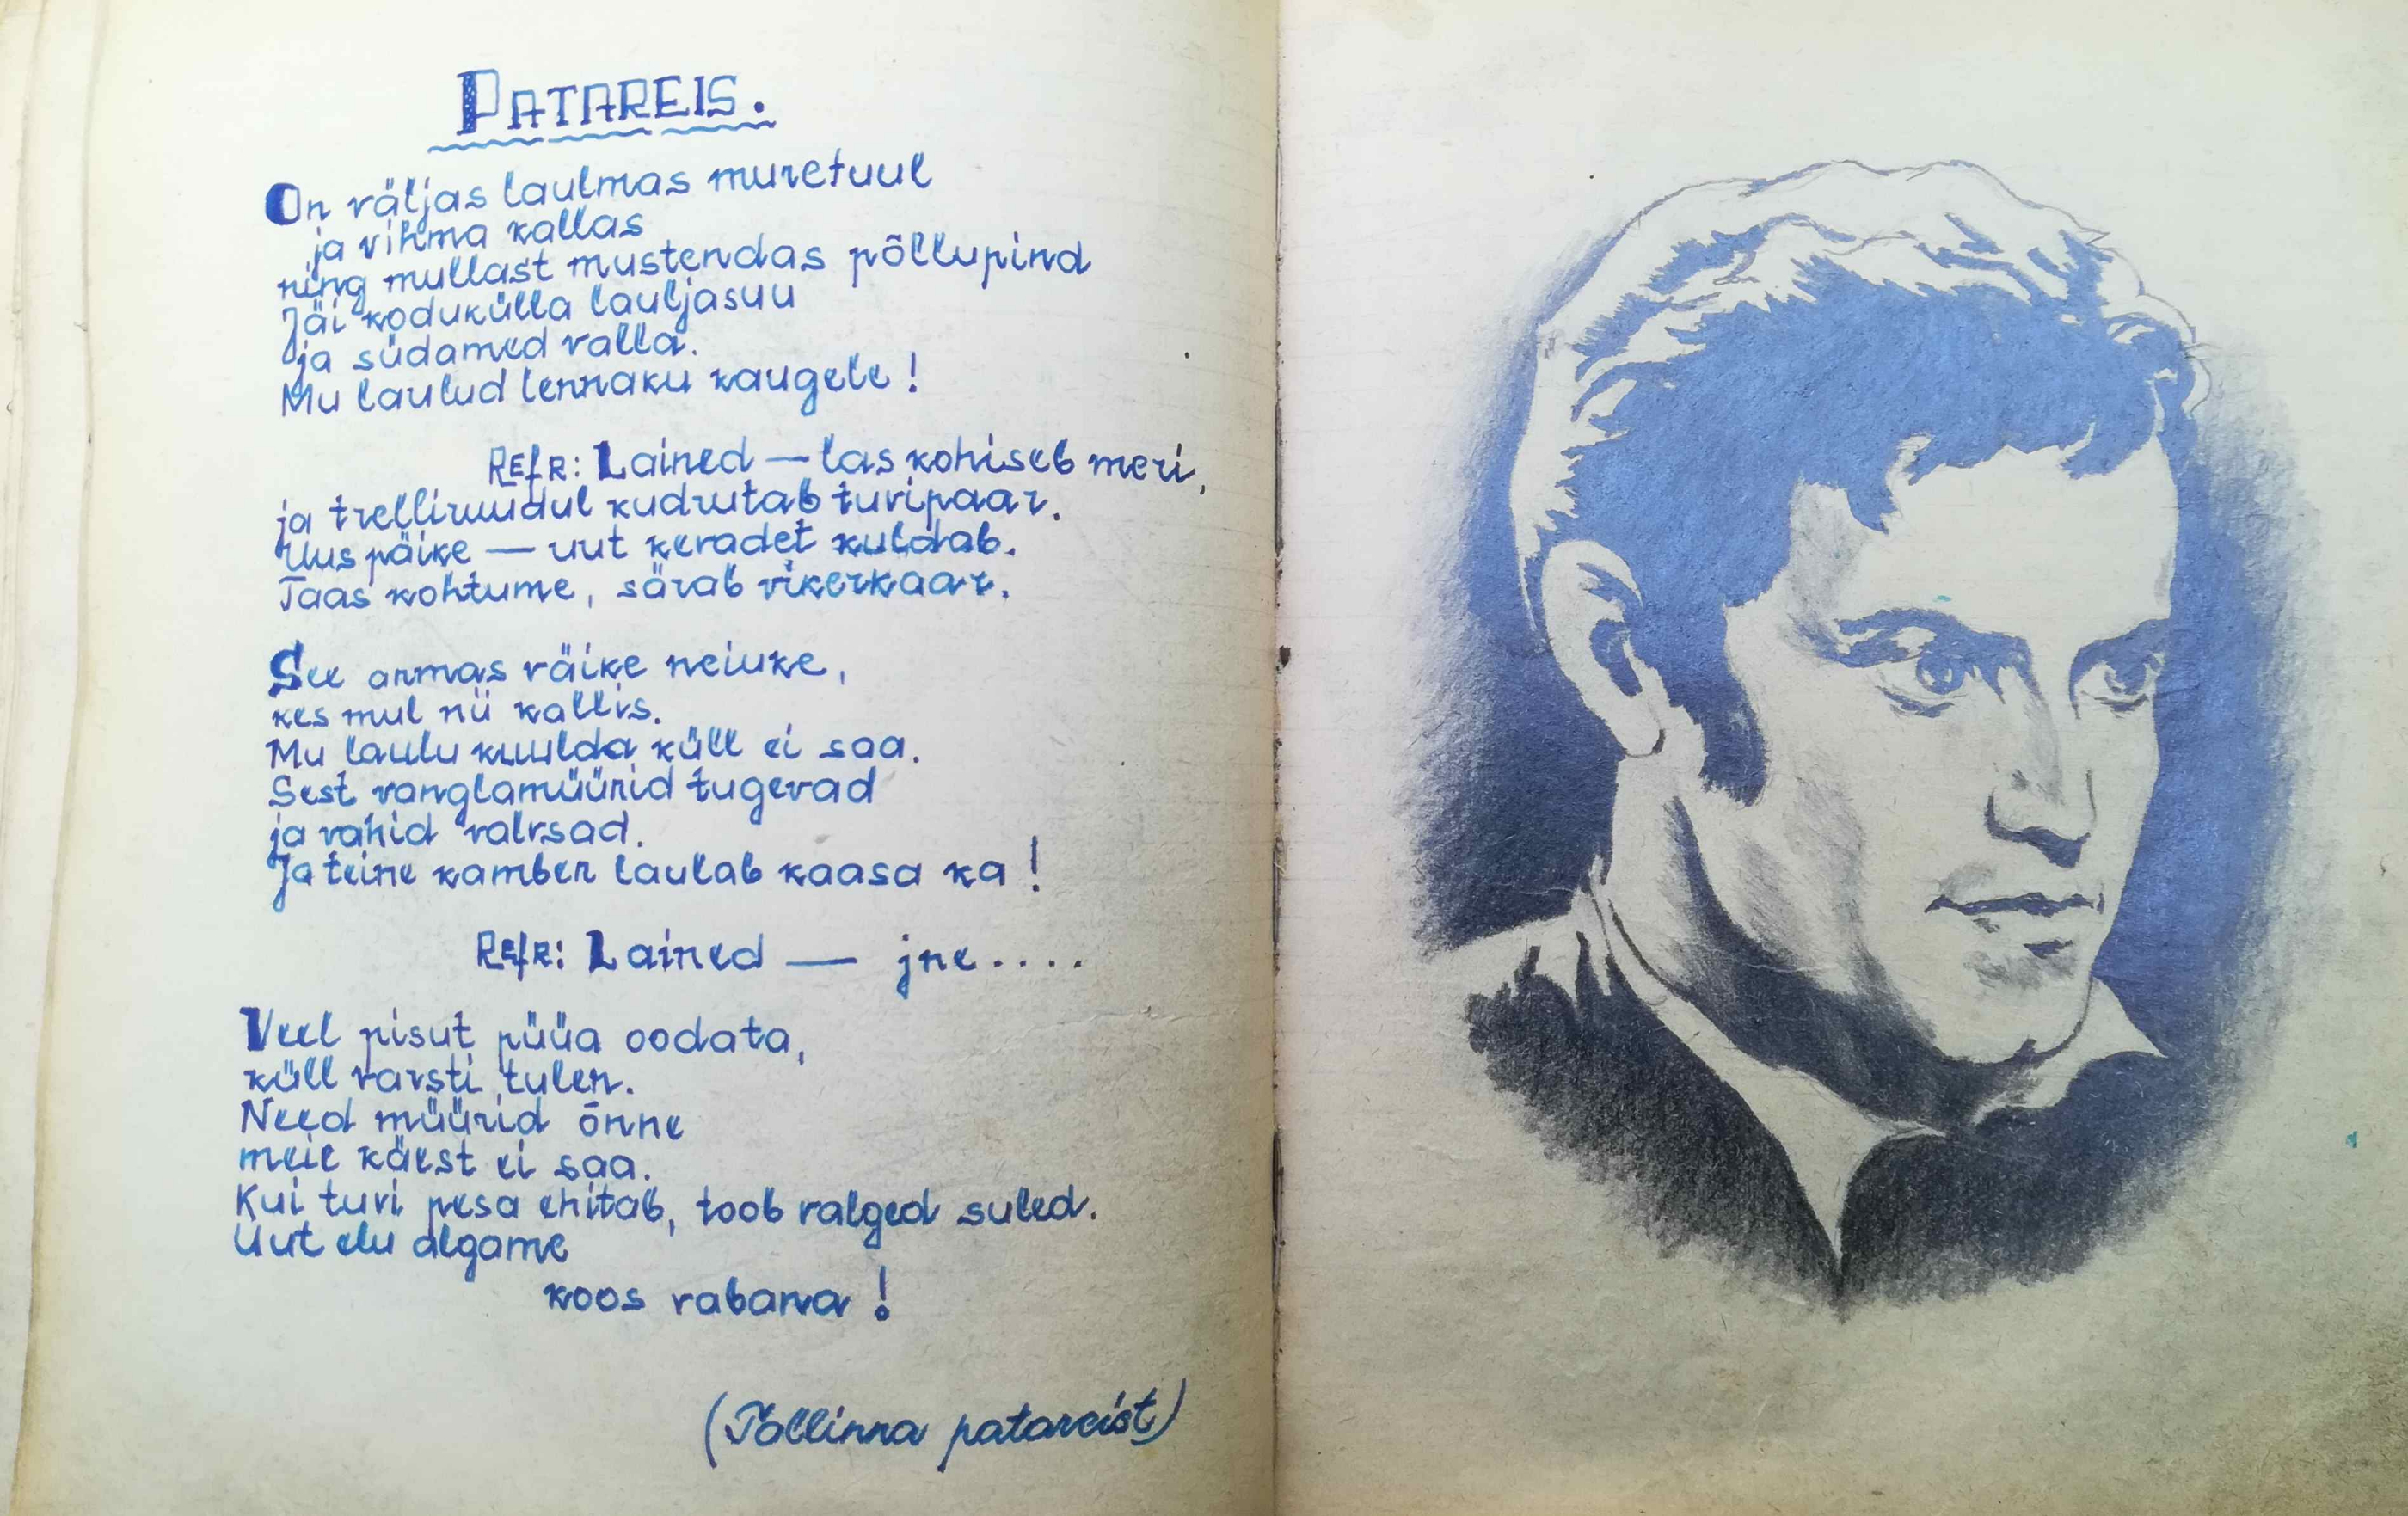 PATAREIS.
On väljas laulmas muretuul
ja vihma kallas
ning mullast mustendas põllupind
Jäi kodukülla lauljasuu
ja südamed valla.
Mu laulud lennaku kaugele!
REFR: Lained — las kohiseb meri,
ja trelliruudul kudrutab tuvipaar.
Uus päike — uut keradet kuldab.
Taas kohtume, särab vikerkaar.
See armas väike neiuke,
kes mul nii kallis.
Mu laulu kuulda küll ei saa.
Sest vanglamüürid tugevad
ja vahid valvsad.
Ja teine kamber laulab kaasa ka!
REFR: Lained — jne....
Veel pisut püüa oodata,
küll varsti tulen.
Need müürid õnne
meie käest ei saa.
Kui tuvi pesa ehitab, toob valged suled.
Uut elu algame
koos vabana!
(Tallinna patareist)